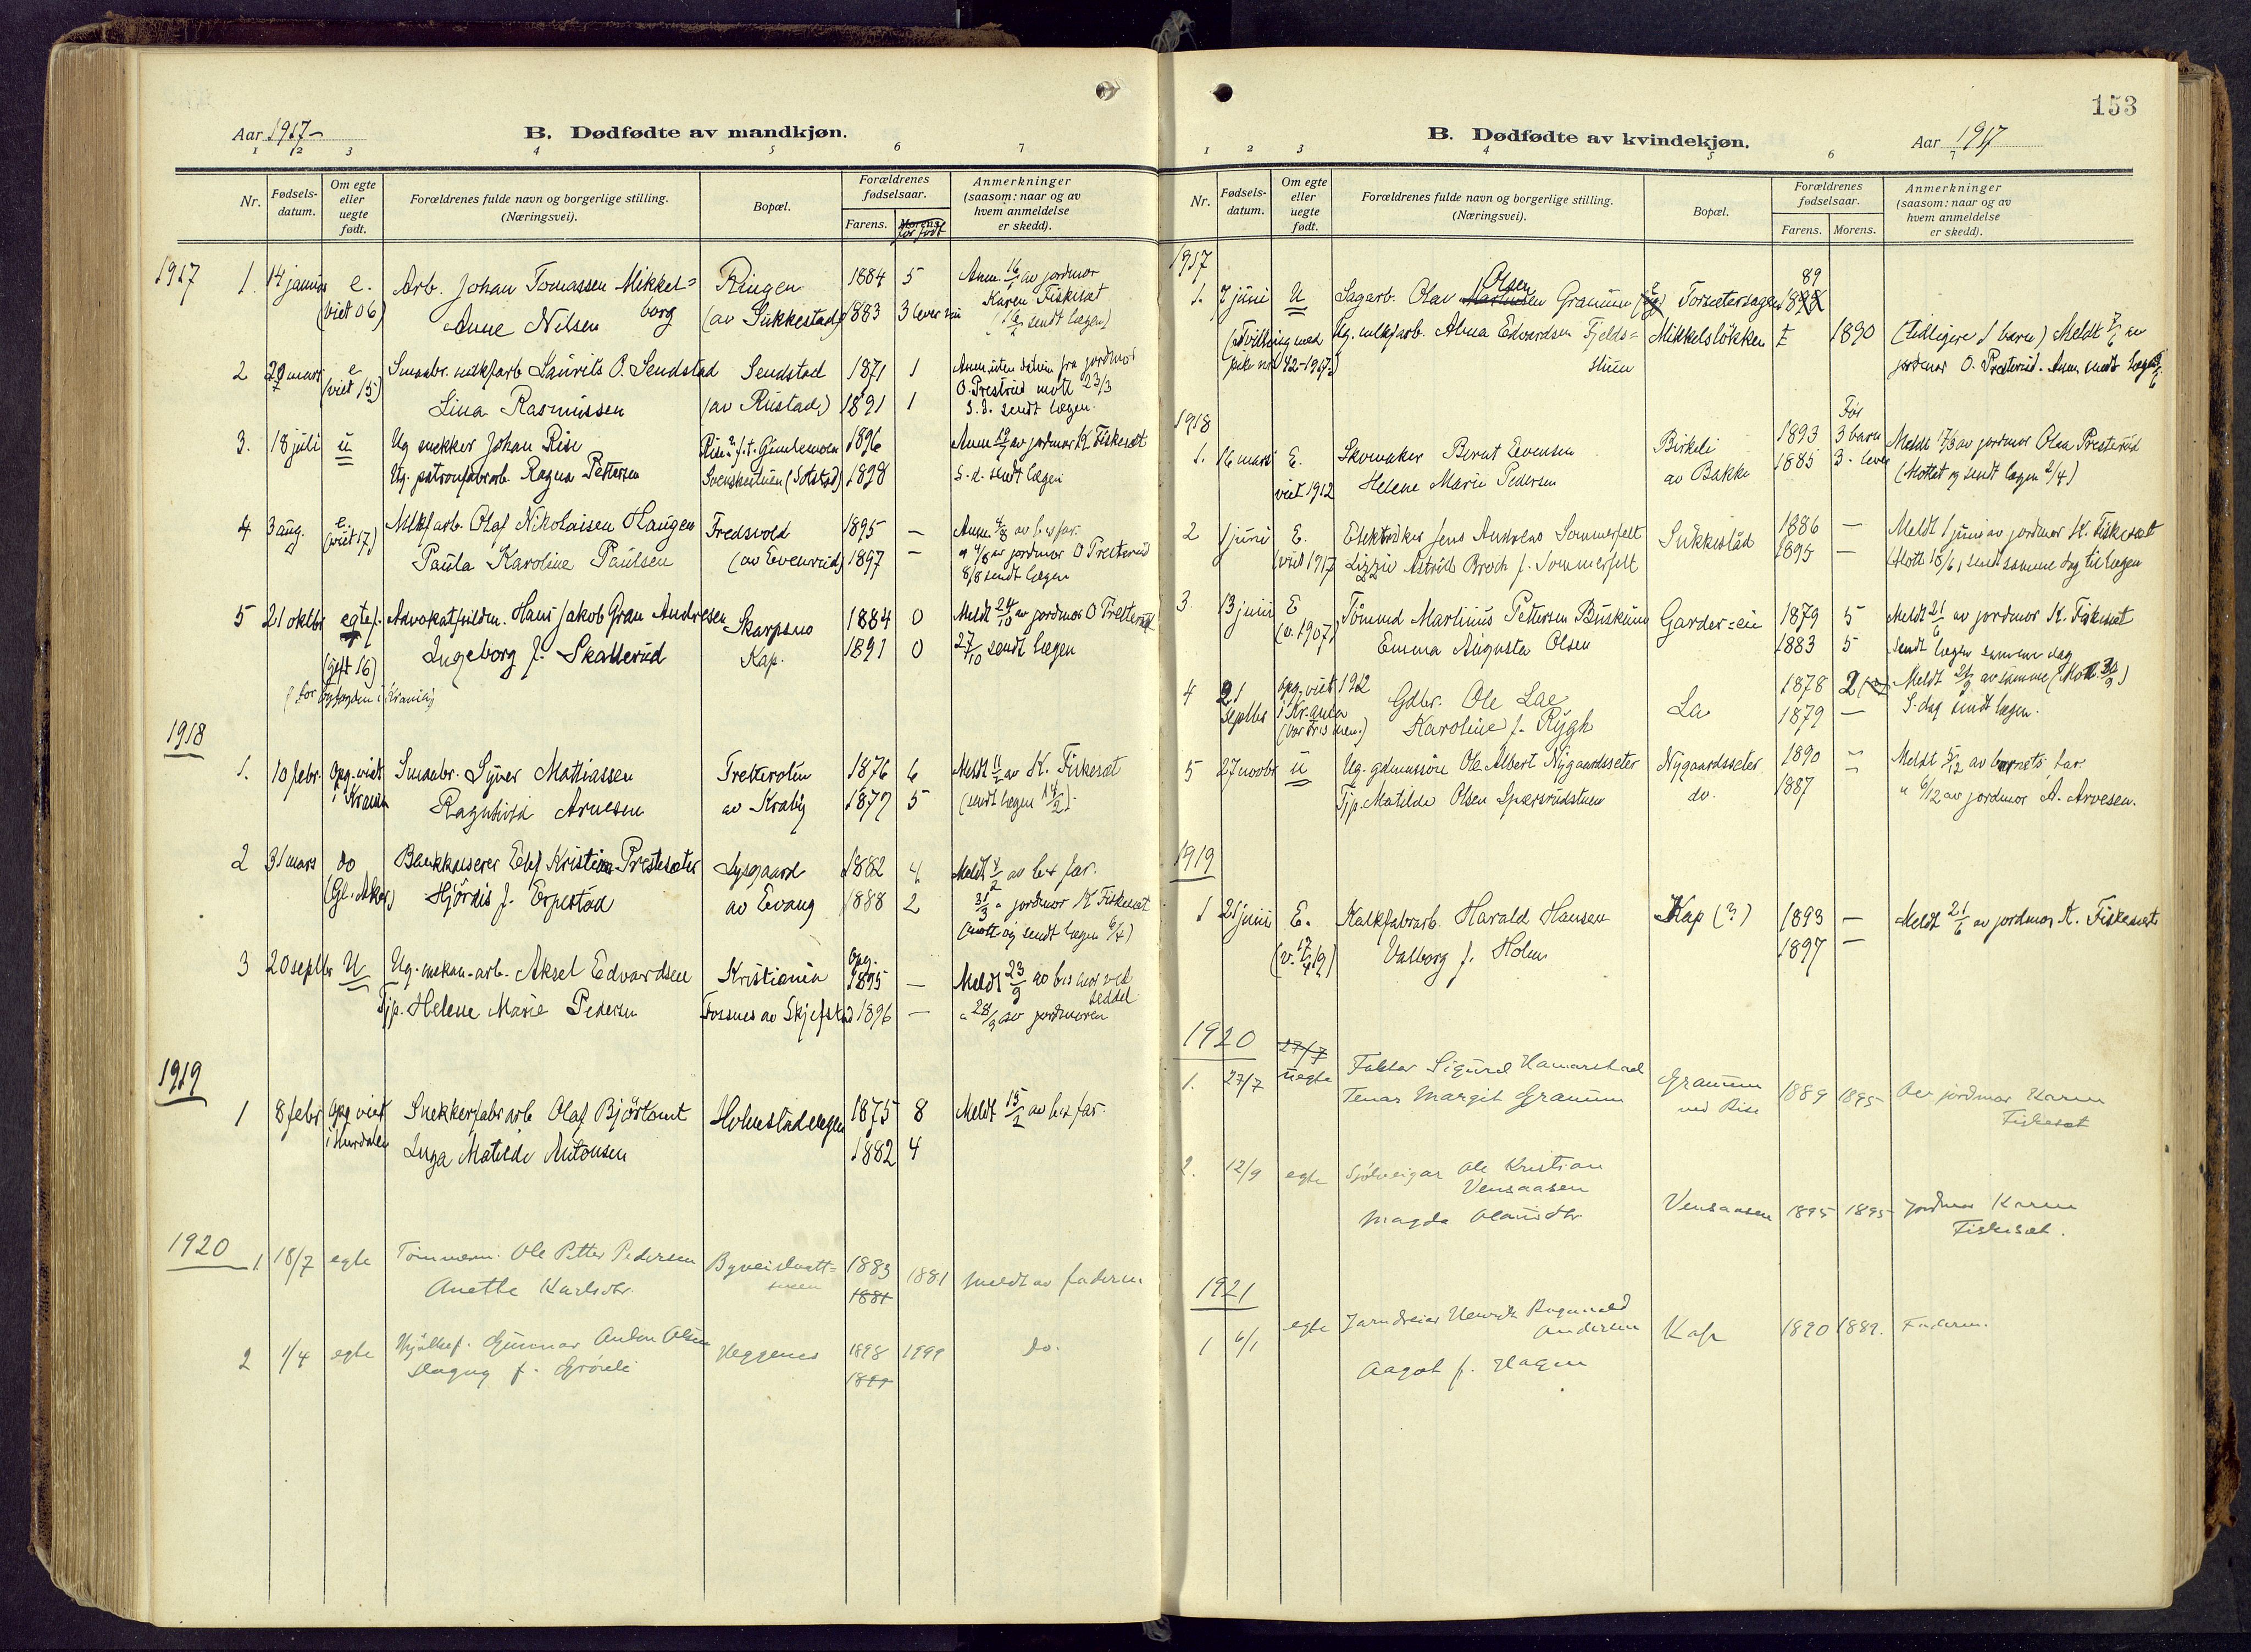 Aar 1917-
B. Dødfødte av mandkjøn.
1 2 3 4 5 6 7
Nr.
Fødsels-datum.
Om egte eller uegte født.
Forældrenes fulde navn og borgerlige stilling.
(Næringsvei).
Bopæl.
Forældrenes fødselsaar.
Farens. Morens
før født
Anmerkninger
(saasom: naar og av
hvem anmeldelse
er skedd).
1917 1. 14 januar e. Arb. Johan Tomassen Mikkel= Ringen 1884 5 Anm. 16/1 av jordmor
(viet 06) Anne Nilsen borg (av Sukkestad) 1883 3 lever Karen Fiskesæt
sendt lægen)
2 29 mars e Smaabr. milkfarb Laurits O. Sendstad Sendstad 1871 1 Anm. uten datum fra jordmor
(viet 15) Lina Rasmussen (av Rustad) 1891 1 O. Presterud mott 23/3
S. d. sendt lægen.
3. 18 juli u Ug snekker Johan Rise 1896 Anm 19/7 av jordmor K. Fiskesæt
Ug. patronfabrarb. Ragna Pettersen 1898 S. d. sendt lægen
4 3 aug. e. Milkf arb. Olaf Nikolaisen Haugen Fredsvold 1895 — Anm. 4/8 av b's far.
(viet 17) Paula Karoline Paulsen (av Evenrud) 1897 — og 4/8 av jordmor O Presterud
8/8 sendt lægen
5 21 oktbr egtef. Advokatfuldm. Hans Jakob Gran Andresen Skarpsno 1884 0 Meldt 24/10 av jordmor O Presterud
(gift 16) Ingeborg f. Skallerud Kap. 1891 0 27/10 sendt lægen
1918
1. 10 febr. Opg. viet Smaabr. Syver Mathiassen Tretterolen 1876 6 Meldt 11/2 av K. Fiskesæt
i Krania Ragnhild Arnesen av Kraby 1877 5 (sendt lægen 14/2).
2 31 mars do Bankkasserer Edef Kristian Prestesæter Lysgaard 1882 4 Meldt av b's far.
(Gl. Aker) Hjördis f. Erpestad av Evang 1888 2 31/3 " jordmor K Fiskesæt
(mott og sendt lægen 6/4)
3 20 septbr U Ug. mekan. arb. Aksel Edvardsen Kristiania opg. 1895 — Meldt 23/9 av b's mor ved
seddel
Tjp. Helene Marie Pedersen Fossnes av Skjefstad 1896 — " 28/9 av jordmoren
1919
1 8 febr Opg viet Snekkerfabrarb Olaf Björtomt Holmstadengen 1875 8 Meldt 15/2 av b's far.
i Hurdalen Inga Matilde Antonsen 1882 4
1920 1. 18/7 egte Tömmerm. Ole Petter Pedersen 1883 1881 Meldt av faderen
Anette Karlsdtr. 1881
2 1/4 egte Gunnar Anton Olsen Heggenes 1898 1999 do.
Dagny f. 1899
153
B. Dødfødte av kvindekjøn. Aar 1917
1 2 3 4 5 6 7
Nr.
Fødsels-datum.
Om egte eller uegte født.
Forældrenes fulde navn og borgerlige stilling.
(Næringsvei).
Bopæl.
Forældrenes fødselsaar.
Farens. Morens.
Anmerkninger
(saasom: naar og av
hvem anmeldelse
er skedd).
1917
Olsen 89
1. 7 juni U Sagarb. Olav Granum 1898
(Tvilling med Ug. milkfarb. Alma Edvardsen Fjelds= Mikkelsløkken 1890 (Tidligere 1 barn) Meldt 7/6 av
pike nr 42-1917) stuen jordmor O. Presterud. Anm. sendt lægen
1918 Før
1. 16 mars E. Skomaker Bernt Evensen Birkeli 1893 3 barn Meldt 17/3 av jordmor Olea Presterud
viet 1912 Helene Marie Pedersen av Bakke 1885 3 - lever (Mottat og sendt lægen 2/4)
2 1 juni E. Elektriker Jens Andreas Sommerfelt Sukkestad 1886 — Meldt 1 juni av jordmor K. Fiskesæt
(viet 1917 Lizzie Astrid Broch f. Sommerfelt 1895 — (Mott 18/6, sendt samme dag til lægen
3. 13 juni E Tömmerm Martinus Pettersen Buskum Garder=eie 1879 5 Meldt 21/6 av jordmor K. Fiskesæt
(v. 1907) Emma Augusta Olsen 1883 5 Sendt lægen samme dag
4 21 septbr Opg. viet 1912 Gdbr. Ole Lae La 1878 2 Meldt av samme
i Kr.ania Karoline f. Rygh 1879 — S. dag sendt lægen.
5 27 novbr u Ug. gdmanssön Ole Albert Nygaardsseter Nygaardsseter 1890 — Meldt 5/12 av barnets far.
Tjp. Matilde Olsen do. 1887 — " 6/12 av jordmor A. Arvesen.
1919
1 21 juni E. Kalkfabrarb. Harald Hansen Kap (?) 1893 — Meldt 21/6 av jordmor K. Fiskesæt
(v. 17/4 19) Valborg f. Holm 1897 —
1920 27/7
1. 27/7 uegte Faktor Sigurd Hamarstad Granum 1889 1895 Av jordmor Karen
Margit Granum ved Rise Fiskesæt
2. 12/9 egte Sjølveigar Ole Kristian
Vensaasen
Magda Olausdtr. Vensaasen 1895 1895 Jordmor Karen
Fiskesæt.
1921
1 6/1 egte Jarndreier Henrik Ragnvald
Andersen Kap 1890 1889. Faderen.
Aagot f. Hagen